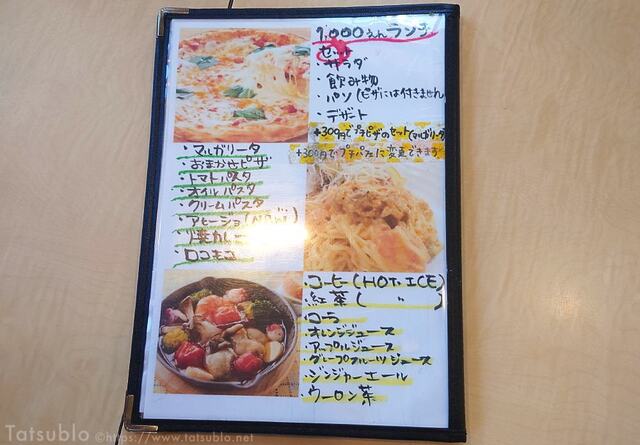 1,000えんランチ
セット
・サラダ
・飲み物
・パン(ピザには付きません
・デザート
+300円でプチピザのセット(マルガリータ
+300円でプチパフェに変更できます
・マルガリータ
・おまかせピザ
・トマトパスタ
・オイルパスタ
・クリームパスタ
・アヒージョ(パン付)
・焼カレー
・ロコモコ
・コーヒー(HOT.ICE)
・紅茶( 〃 )
・コーラ
・オレンジジュース
・アップルジュース
・グレープフルーツジュース
・ジンジャーエール
・ウーロン茶
Tatsublo ©https://www.tatsublo.net